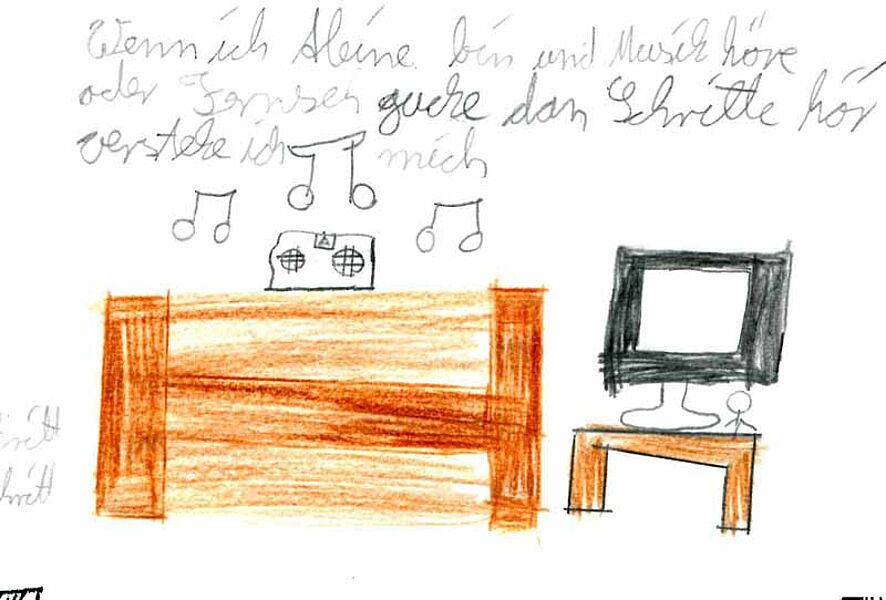 Wenn ich Aleine bin und Musik höre
oder Fernseh gucke dan Schritte hör
versteke ich mich
ritt
chritt